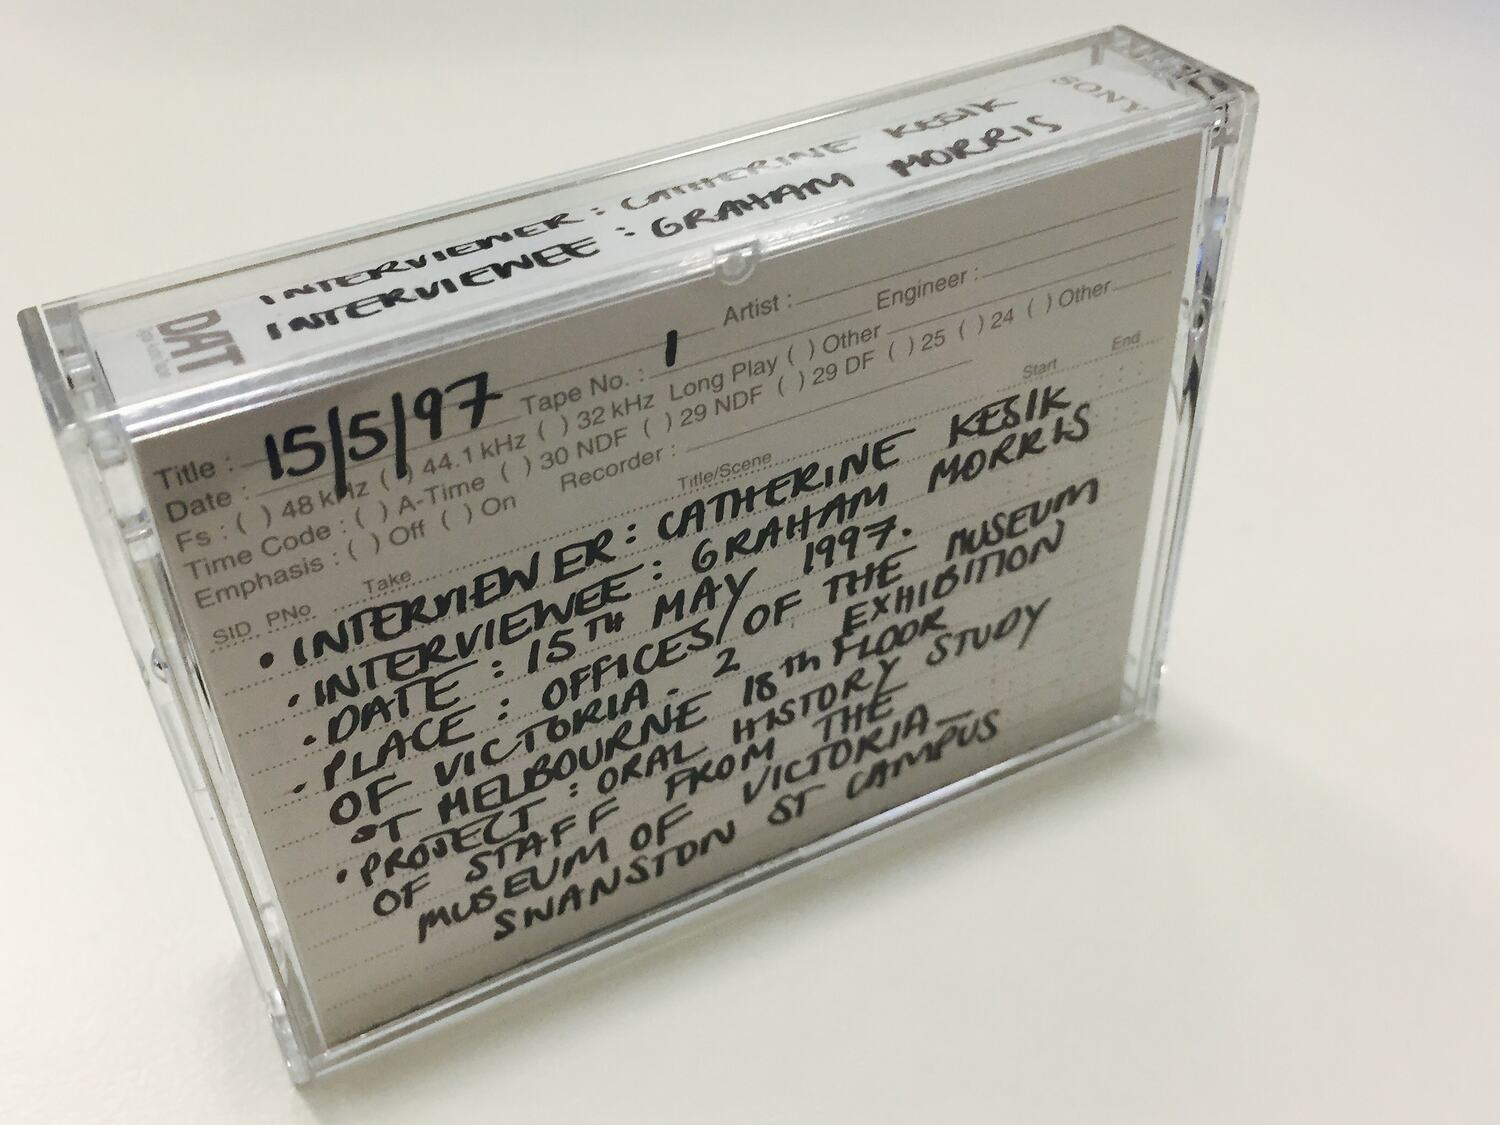 SONY
DAT
INTERVIEWER : CATHERINE KESIK
INTERVIEWEE : GRAHAM MORRIS
Title :
Date : 15/5/97 Tape No. : 1 Artist :
Fs : ( ) 48 kHz ( ) 44.1 kHz ( ) 32 kHz Long Play ( ) Other Engineer :
Time Code : ( ) A-Time ( ) 30 NDF ( ) 29 NDF ( ) 29 DF ( ) 25 ( ) 24 ( ) Other
Emphasis : ( ) Off ( ) On Recorder :
SID PNo Take Title/Scene Start End
• INTERVIEWER : CATHERINE KESIK
• INTERVIEWEE : GRAHAM MORRIS
• DATE : 15TH MAY 1997.
• PLACE : OFFICES/OF THE MUSEUM
OF VICTORIA. 2 EXHIBITION
ST MELBOURNE 18th FLOOR
• PROJECT : ORAL HISTORY STUDY
OF STAFF FROM THE
MUSEUM OF VICTORIA_
SWANSTON ST CAMPUS